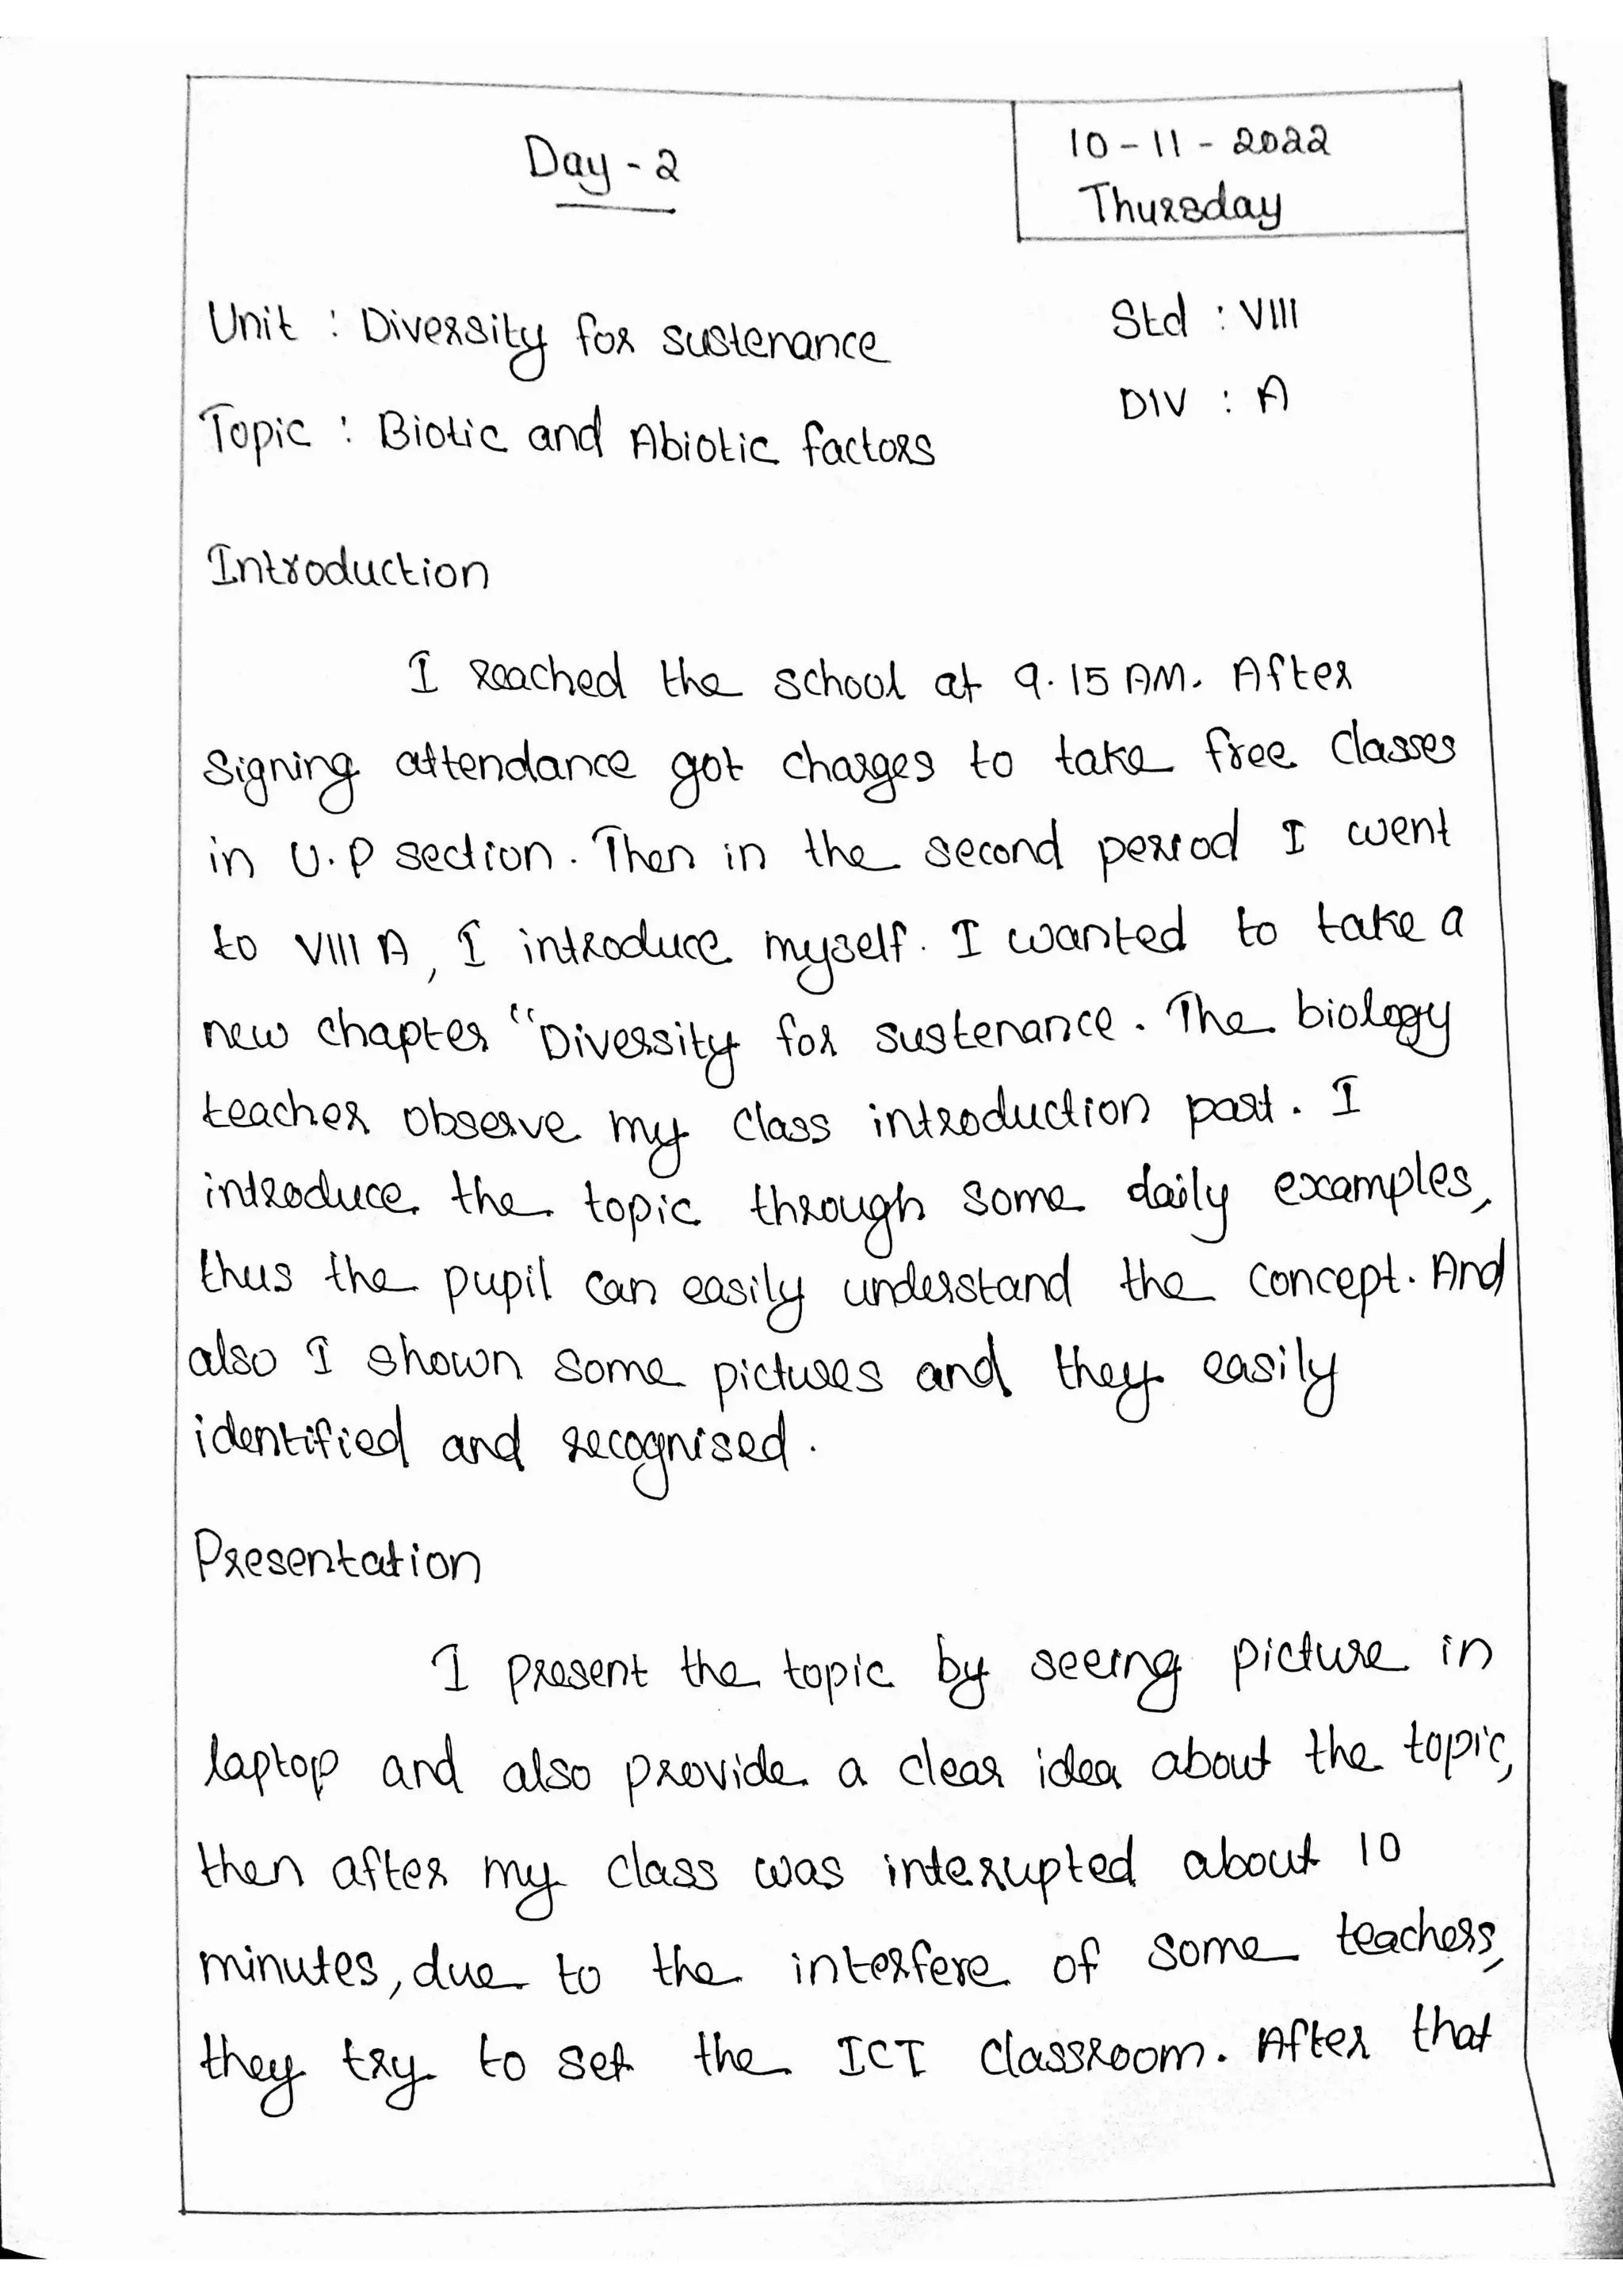 Day - 2
10 - 11 - 2022
Thursday
Unit : Diversity for sustenance
Std : VIII
DIV : A
Topic : Biotic and Abiotic factors
Introduction
I reached the school at 9.15 AM. After
signing attendance got charges to take free classes
in U.P section. Then in the second period I went
to VIII A, I introduce myself. I wanted to take a
new chapter "Diversity for sustenance. The biology
teacher observe my class introduction part. I
introduce the topic through some daily examples,
thus the pupil can easily understand the concept. And
also I shown some pictures and they easily
identified and recognised.
Presentation
I present the topic by seeing picture in
laptop and also provide a clear idea about the topic,
then after my class was interupted about 10
minutes, due to the interfere of some teachers,
they try to set the ICT classroom. After that